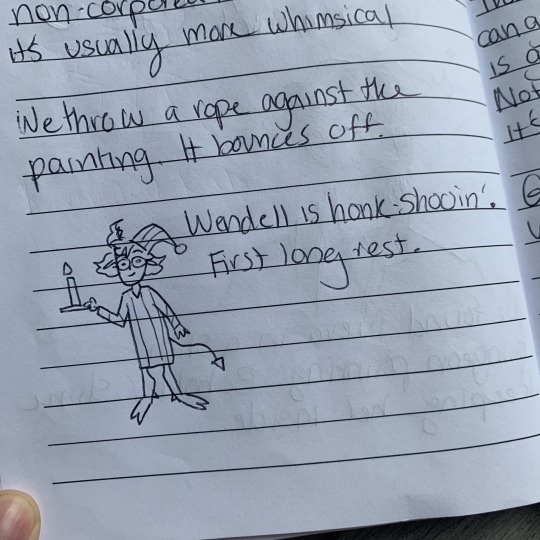 its usually more whimsical
We throw a rope against the
painting. It bounces off.
Wendell is honk-shooin'.
First long rest.
can a
is
Not
it's